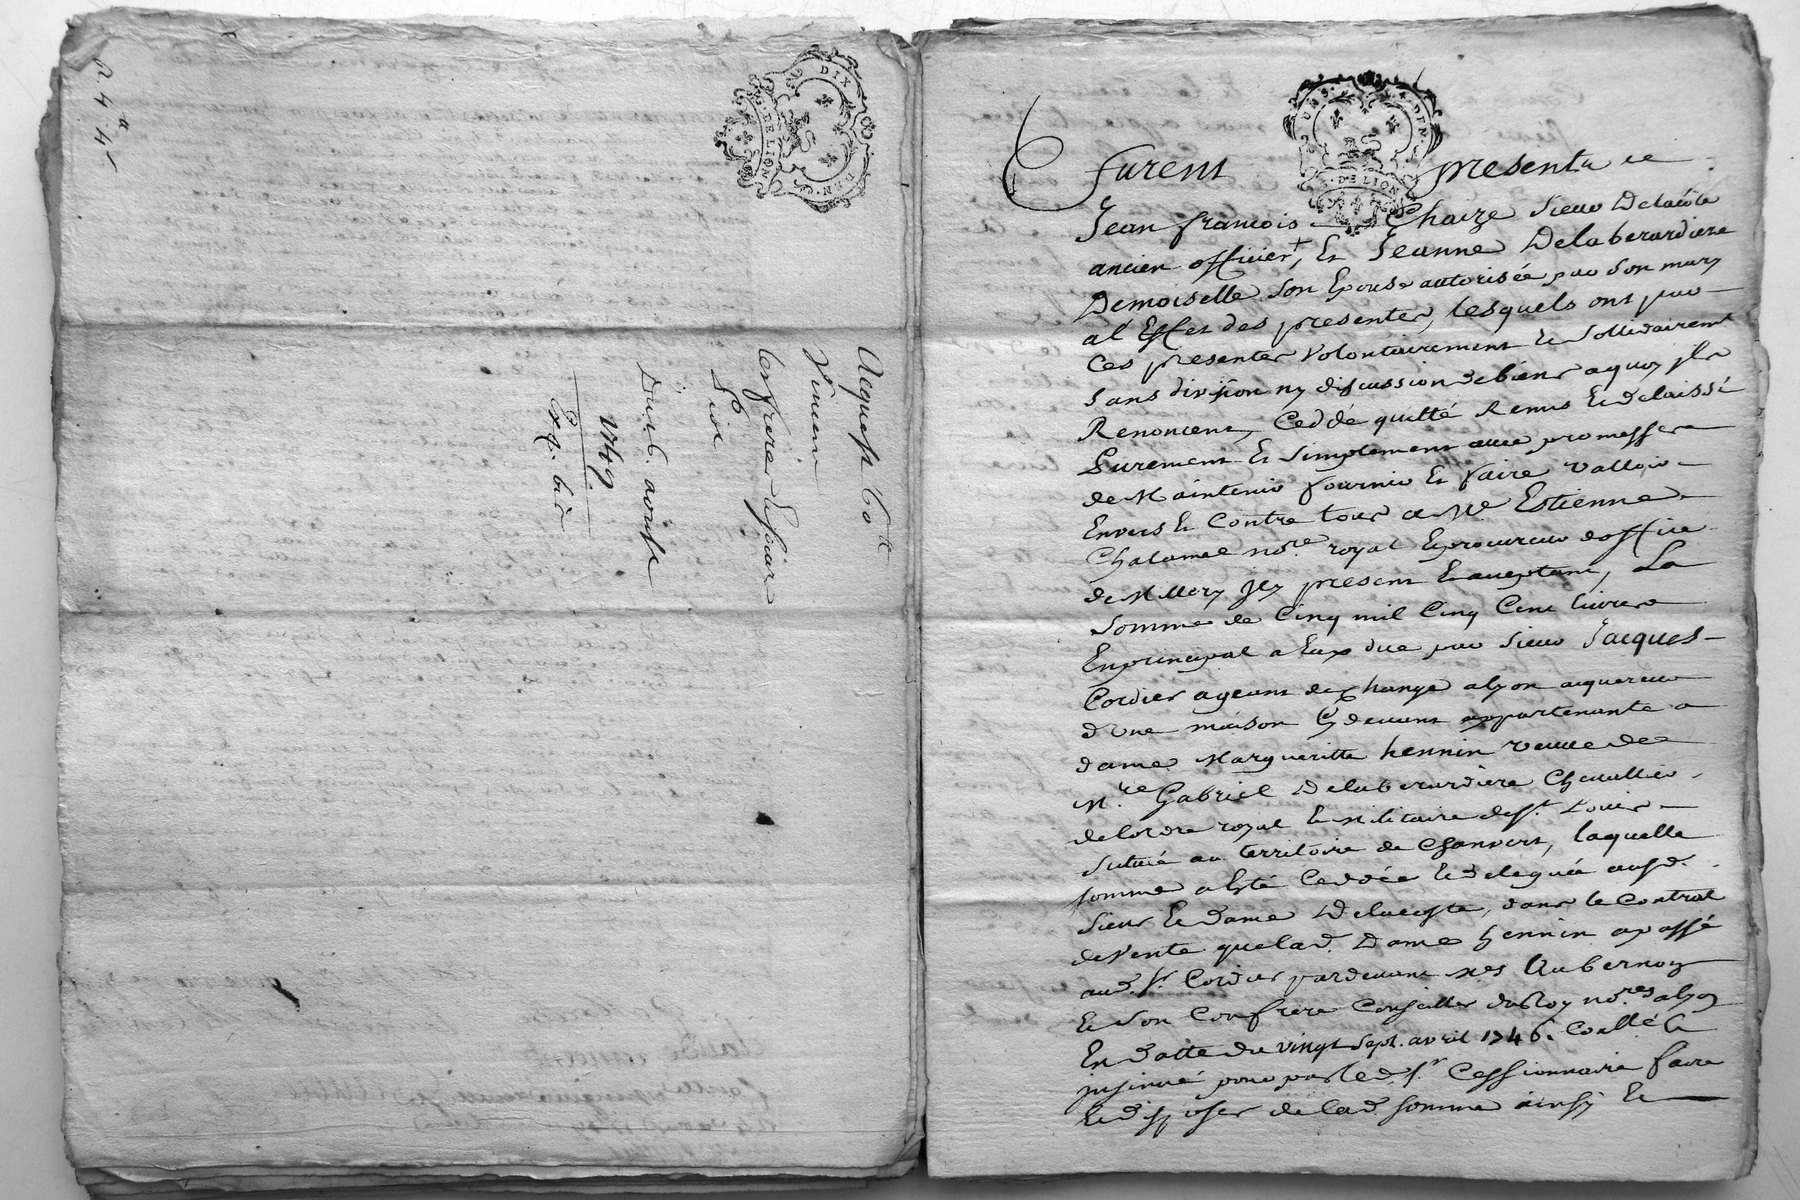 R 4 4
DIX DEN.
G. DE LION
Acquest 60
Vincen
les frere Espiar
Du 6. aoust
1749.
Exq. bie
4. DEN.
G. DE LION
furent presents
Jean francois Chaize sieur Delacôte
ancien officier, Et Jeanne Delaberardiere
Demoiselle son Epouse autorisée par son mary
a l'Effet des presentes, lesquels ont par
ces presentes Volontairement Et sollidairemt
sans division ny discussion de biens a quoy jls
Renoncent, Ceddé quitté Remis Et delaissé
Purement Et simplement avec promesse
de Maintenir fournir Et faire Valloir
Envers Et Contre tous a Me Estienne
Chalamel nore royal Et procureur doffice
de Millery jcy present Et aceptant, La
somme de Cinq mil Cinq Cent livres
En principal a Eux due par sieur Jacques
Cordier agent de Change a lyon aquereur
d'une maison Cy devant appartenante a
dame Margueritte hennin veuve de
Mre Gabriel Delaberardiere Chevallier
de lordre royal Et Militaire de st. Louis
situéé au territoire de Chanvert, laquelle
somme a Esté Ceddéé Et deleguéé ausd.
sieur Et dame Delacoste, dans le Contrat
de Vente que lad. Dame hennin a passé
aud. sr. Cordier pardevant Mes Aubernon
Et son Confrere Conseiller du Roy nores a lyon
En datte du vingt sept. avril 1746. Collé &
jnsinué pour par led. sr. Cessionnaire faire
Et disposer de lad. somme ainsy Et